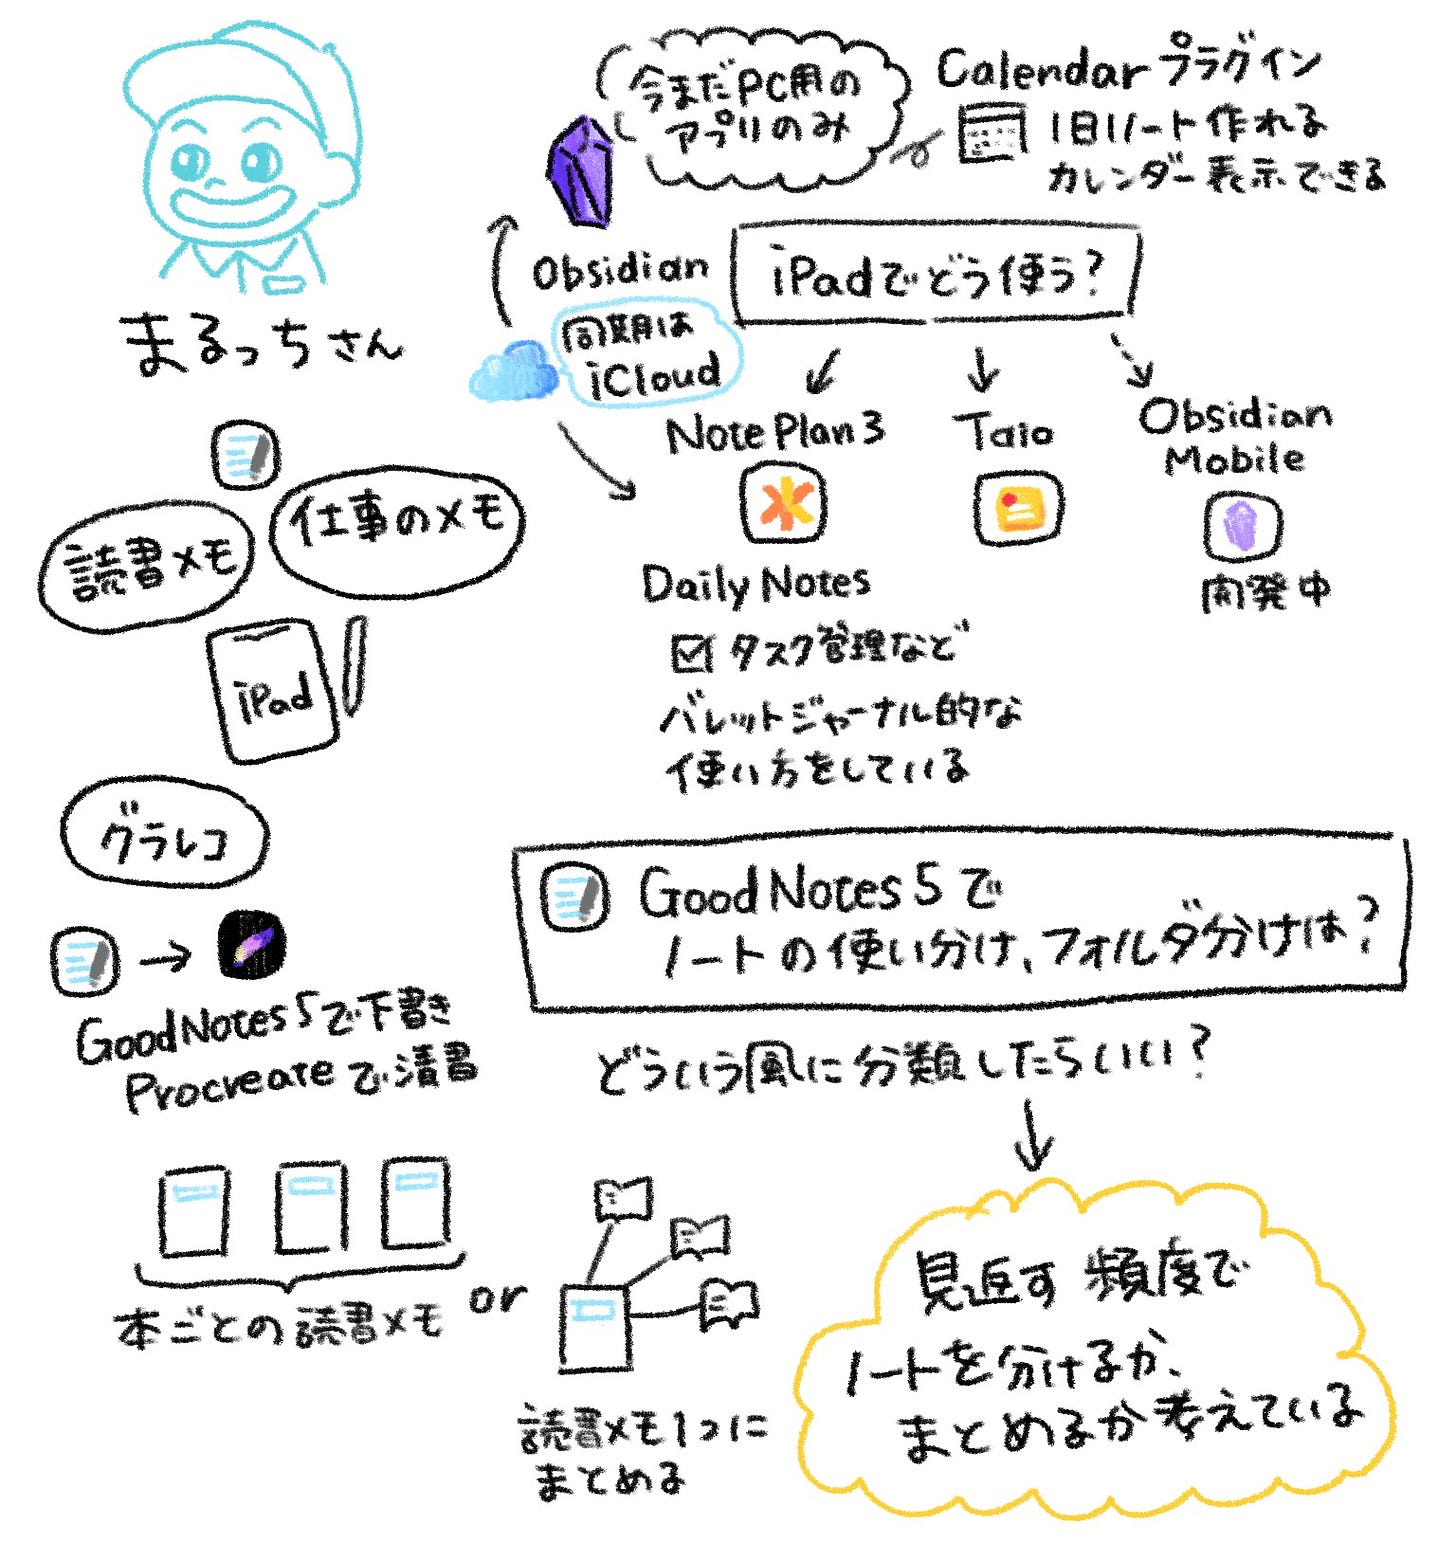 まるっちさん
読書メモ
仕事のメモ
iPad
グラレコ
GoodNotes5で下書き
Procreateで清書
本ごとの読書メモ
or
読書メモ1つに
まとめる
今まだPC用の
アプリのみ
Calendarプラグイン
1日1ノート作れる
カレンダー表示できる
Obsidian
同期は
iCloud
iPadでどう使う?
Note Plan 3
Taio
Obsidian
Mobile
開発中
Daily Notes
タスク管理など
バレットジャーナル的な
使い方をしている
GoodNotes 5で
ノートの使い分け、フォルダ分けは?
どういう風に分類したらいい?
見返す頻度で
ノートを分けるか、
まとめるか考えている